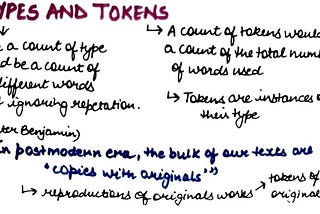 YPES AND TOKENS
a count of type
d be a count of
different words
ignoring repetation.
↳ A count of tokens would
a count of the total num
of words used
↳ Tokens are instances o
their type
ter Benjamin)
n postmodern era, the bulk of our texts are
"copies with originals"
↳ reproductions of originals works → tokens of
original